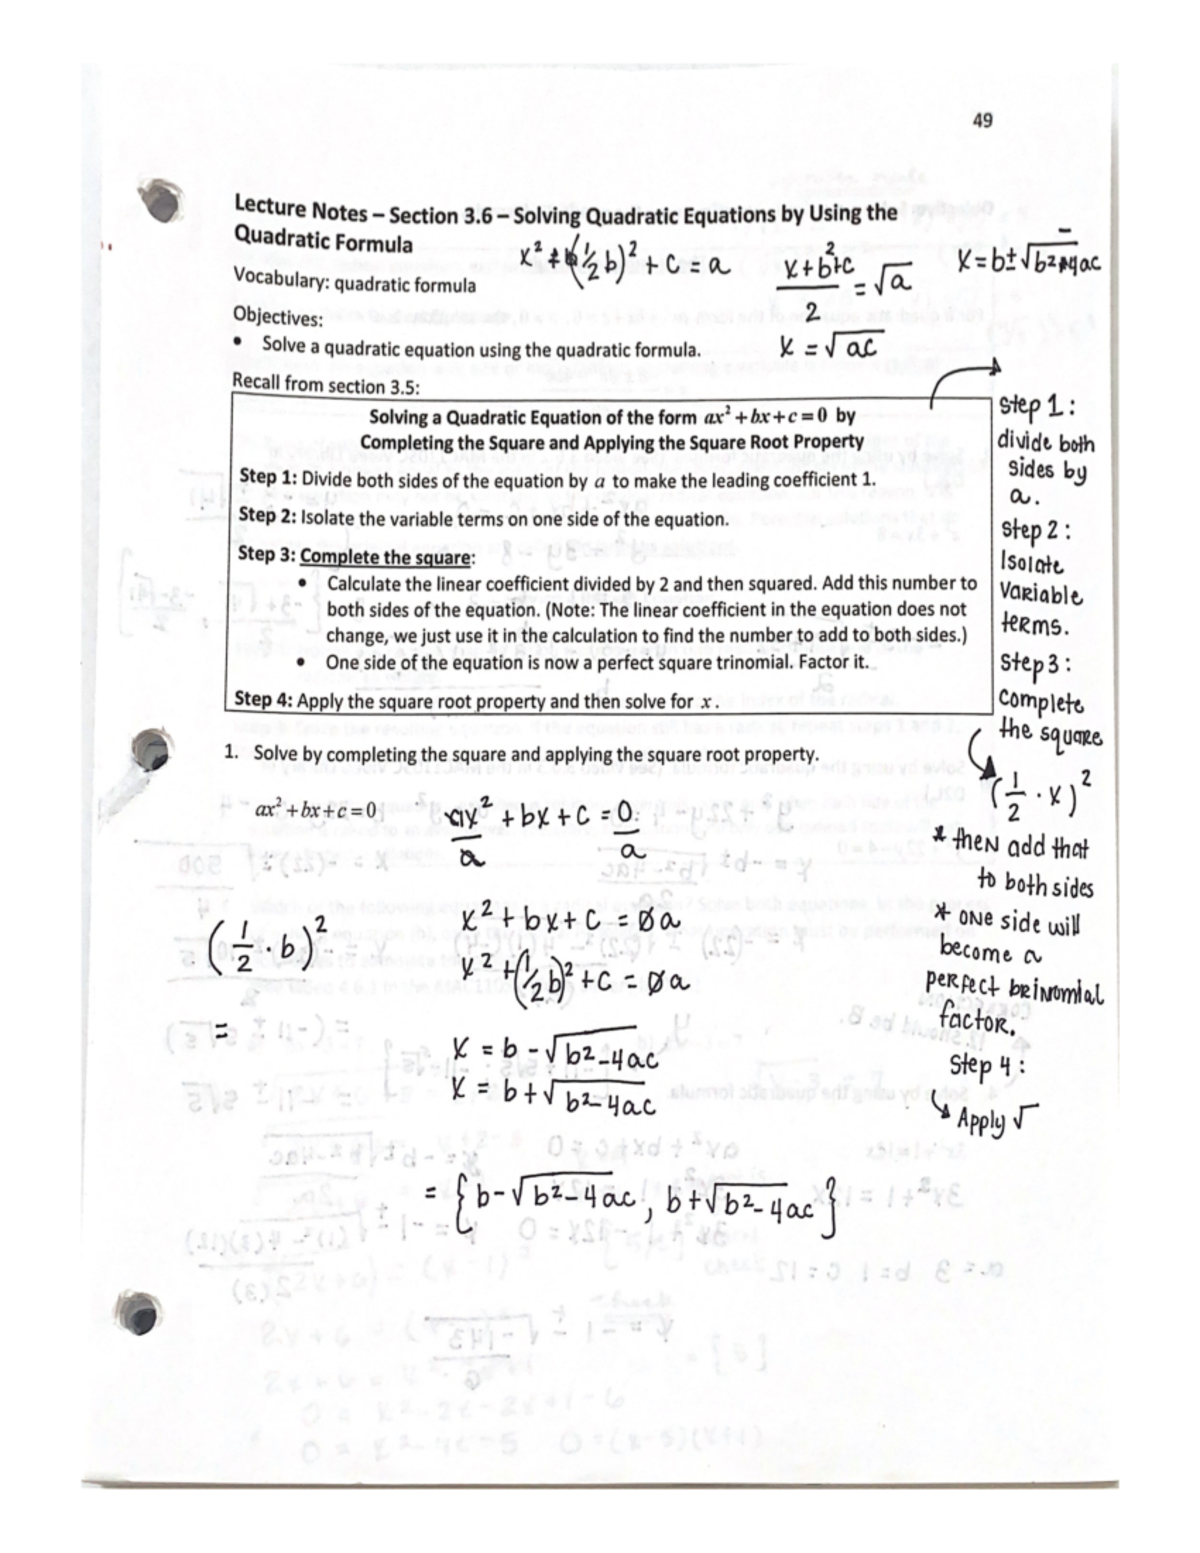 49
Lecture Notes – Section 3.6 – Solving Quadratic Equations by Using the
Quadratic Formula
x² + (½ b)² + c = a
x + b² + c / 2 = √a
x = b ± √b² - 4ac
Vocabulary: quadratic formula
Objectives:
• Solve a quadratic equation using the quadratic formula.
x = √ac
Recall from section 3.5:
Solving a Quadratic Equation of the form ax² + bx + c = 0 by
Completing the Square and Applying the Square Root Property
Step 1: Divide both sides of the equation by a to make the leading coefficient 1.
Step 2: Isolate the variable terms on one side of the equation.
Step 3: Complete the square:
• Calculate the linear coefficient divided by 2 and then squared. Add this number to
both sides of the equation. (Note: The linear coefficient in the equation does not
change, we just use it in the calculation to find the number to add to both sides.)
• One side of the equation is now a perfect square trinomial. Factor it.
Step 4: Apply the square root property and then solve for x.
Step 1:
divide both
sides by
a.
Step 2:
Isolate
variable
terms.
Step 3:
complete
the square
(1/2 · x)²
* then add that
to both sides
* one side will
become a
perfect brinomial
factor.
Step 4:
Apply √
1. Solve by completing the square and applying the square root property.
ax² + bx + c = 0
ax²/a + bx + c = 0/a
x² + bx + c = 0 a
(1/2 · b)²
x² + (½ b)² + c = 0 a
=
x = b - √b² - 4ac
x = b + √b² - 4ac
= { b - √b² - 4ac , b + √b² - 4ac }